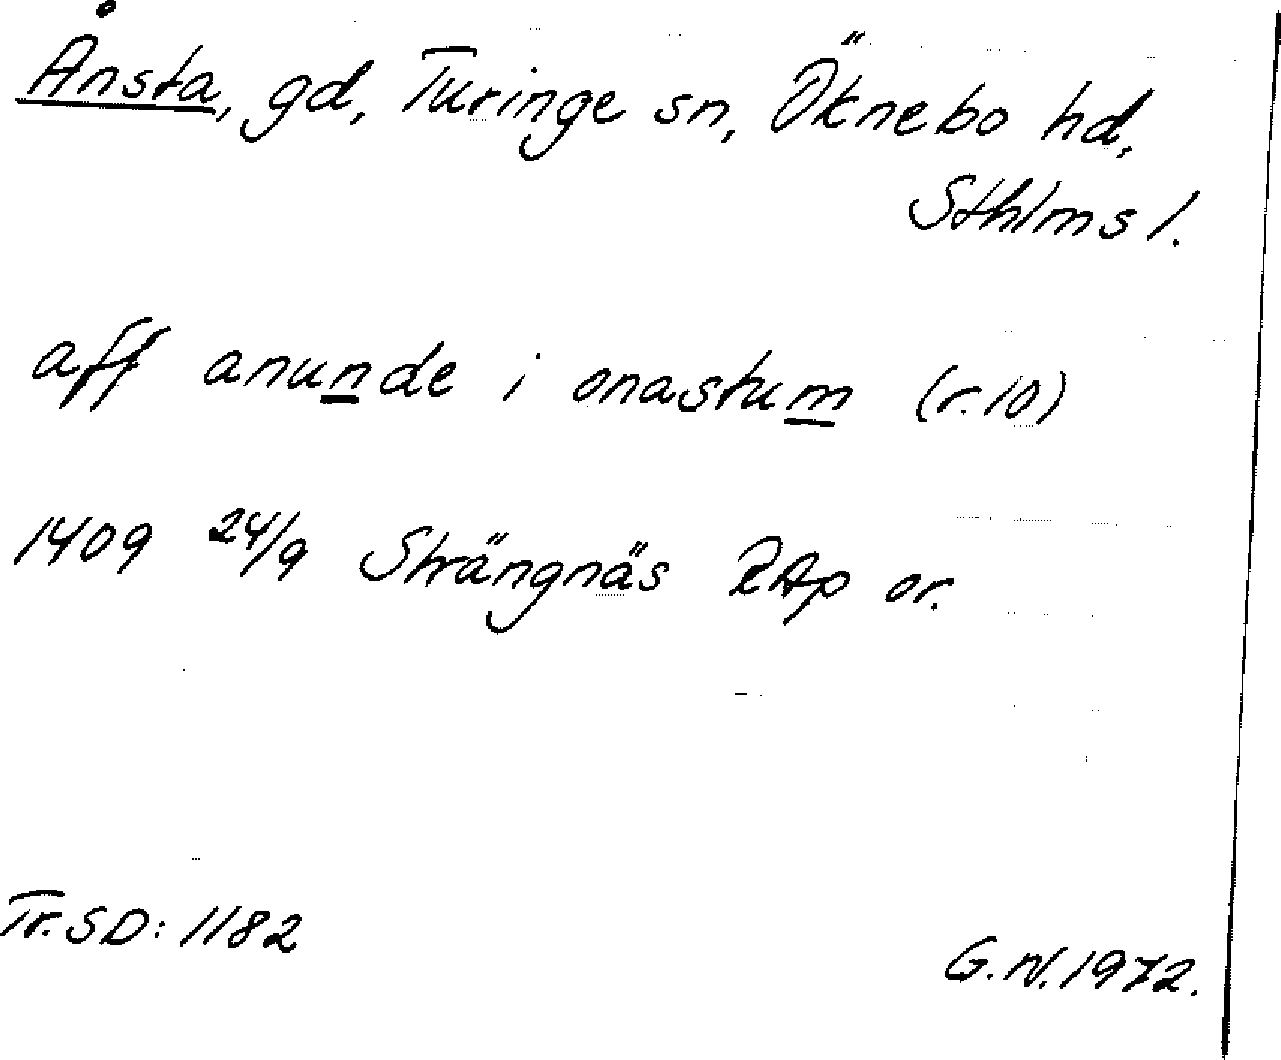 Ånsta, gd, Turinge sn, Öknebo hd,
Sthlms l.
aff anunde i onastum (r. 10)
1409 24/9 Strängnäs RAp or.
Tr. SD: 1182
G. N. 1972.